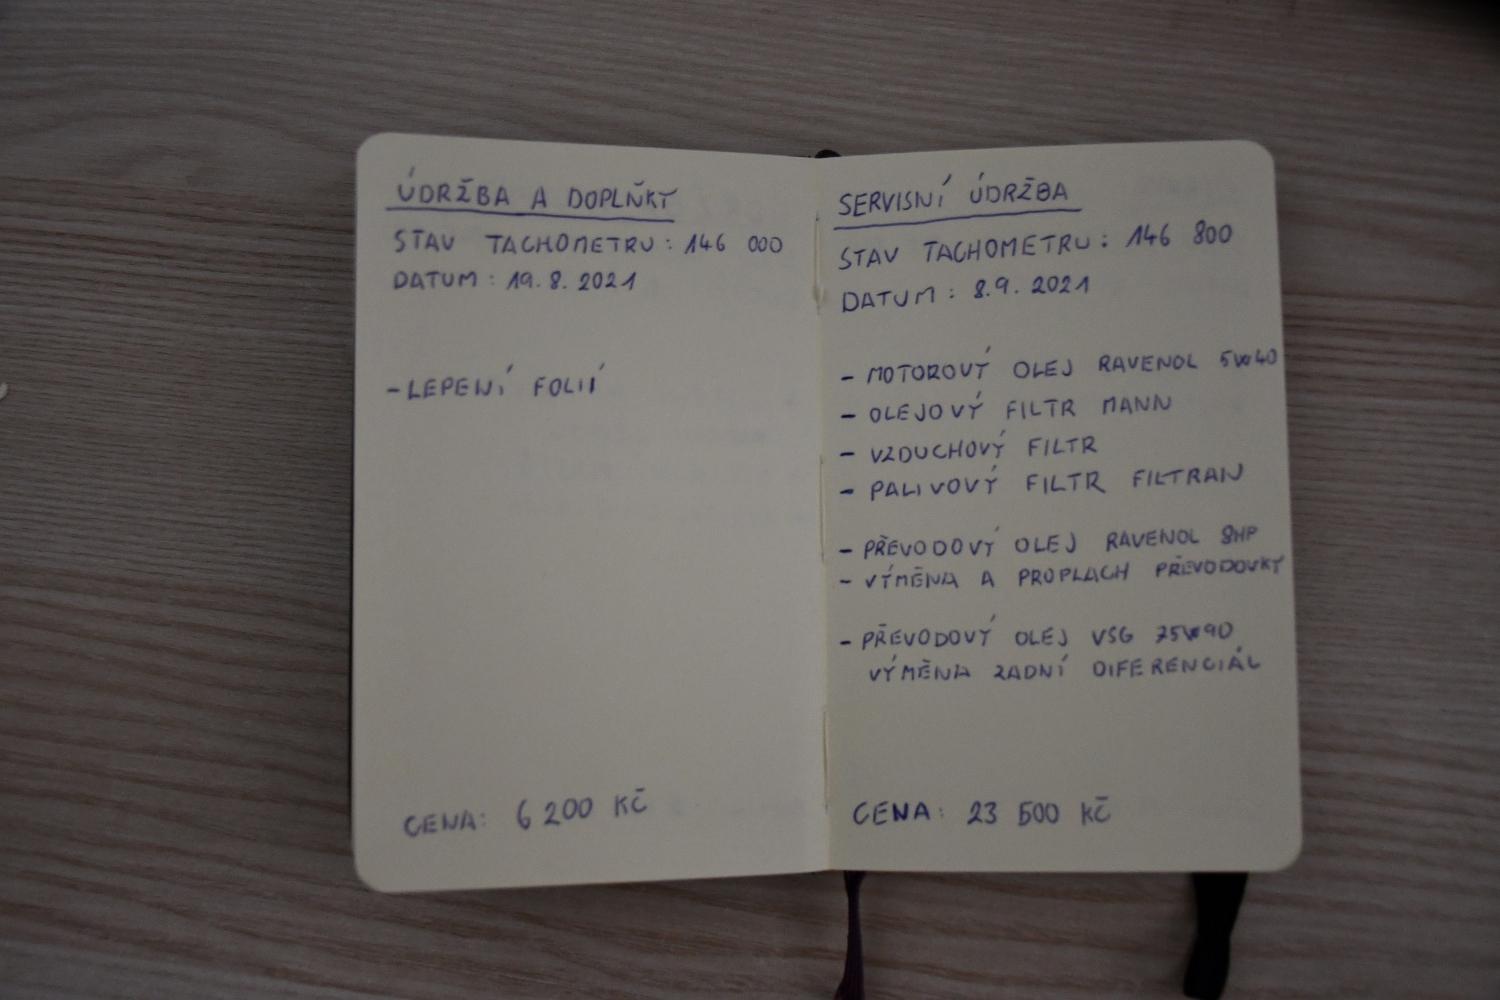 ÚDRŽBA A DOPLŇKY
STAV TACHOMETRU: 146 000
DATUM: 19.8.2021
-LEPENÍ FOLIÍ
CENA: 6 200 KČ
SERVISNÍ ÚDRŽBA
STAV TACHOMETRU: 146 800
DATUM: 8.9.2021
- MOTOROVÝ OLEJ RAVENOL 5W40
- OLEJOVÝ FILTR MANN
- VZDUCHOVÝ FILTR
- PALIVOVÝ FILTR FILTRAN
- PŘEVODOVÝ OLEJ RAVENOL 8HP
- VÝMĚNA A PROPLACH PŘEVODOVKY
- PŘEVODOVÝ OLEJ VSG 75W90
VÝMĚNA ZADNÍ DIFERENCIÁL
CENA: 23 500 KČ